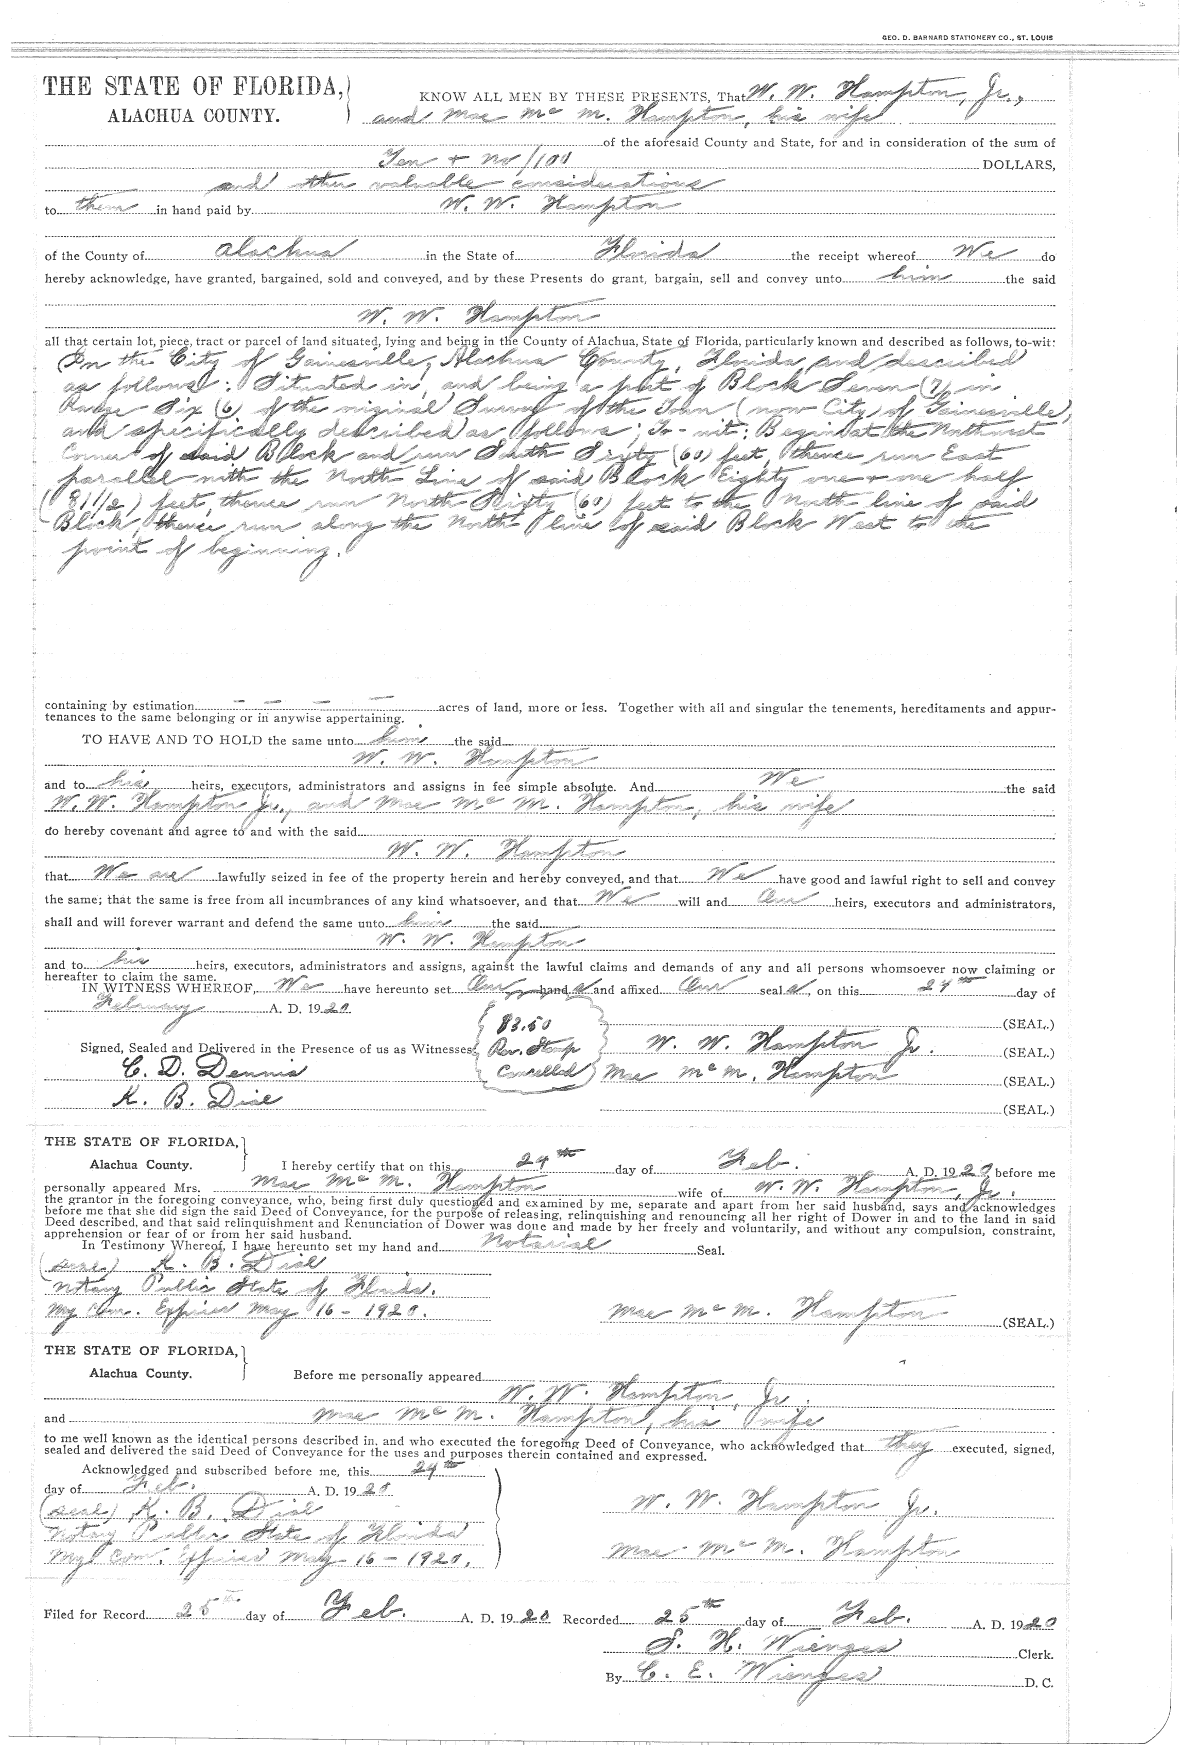 GEO. D. BARNARD STATIONERY CO., ST. LOUIS
THE STATE OF FLORIDA,
ALACHUA COUNTY.
KNOW ALL MEN BY THESE PRESENTS, That W. W. Hampton, Jr.,
and Mae Mc M. Hampton, his wife
of the aforesaid County and State, for and in consideration of the sum of
Ten + no/100 DOLLARS,
and other valuable considerations
to them in hand paid by W. W. Hampton
of the County of Alachua in the State of Florida the receipt whereof We do
hereby acknowledge, have granted, bargained, sold and conveyed, and by these Presents do grant, bargain, sell and convey unto him the said
W. W. Hampton
all that certain lot, piece, tract or parcel of land situated, lying and being in the County of Alachua, State of Florida, particularly known and described as follows, to-wit:
In the City of Gainesville, Alachua County, Florida, and described
as follows: Situated in, and being a part of Block Seven (7), in
Range Six (6) of the original Survey of the Town (now City) of Gainesville,
and specifically described as follows; To-wit: Begin at the Northwest
Corner of said Block and run South Sixty (60) feet, thence run East
parallel with the North Line of said Block Eighty one + one half
(81 1/2) feet, thence run North Sixty (60) feet to the North line of said
Block, thence run along the North line of said Block West to the
point of beginning.
containing by estimation - - - - acres of land, more or less. Together with all and singular the tenements, hereditaments and appur-
tenances to the same belonging or in anywise appertaining.
TO HAVE AND TO HOLD the same unto him the said
W. W. Hampton
and to his heirs, executors, administrators and assigns in fee simple absolute. And We the said
W. W. Hampton Jr., and Mae Mc M. Hampton, his wife
do hereby covenant and agree to and with the said
W. W. Hampton
that We are lawfully seized in fee of the property herein and hereby conveyed, and that We have good and lawful right to sell and convey
the same; that the same is free from all incumbrances of any kind whatsoever, and that We will and Our heirs, executors and administrators,
shall and will forever warrant and defend the same unto him the said
W. W. Hampton
and to his heirs, executors, administrators and assigns, against the lawful claims and demands of any and all persons whomsoever now claiming or
hereafter to claim the same.
IN WITNESS WHEREOF, We have hereunto set Our hand s and affixed Our seal s, on this 24th day of
February A. D. 1920.
(SEAL.)
$3.50
Rev. Stamp
Cancelled
Signed, Sealed and Delivered in the Presence of us as Witnesses:
W. W. Hampton Jr. (SEAL.)
C. D. Dennis
Mae Mc M. Hampton (SEAL.)
K. B. Dial
(SEAL.)
THE STATE OF FLORIDA,
Alachua County.
I hereby certify that on this 24th day of Feb. A. D. 1920 before me
personally appeared Mrs. Mae Mc M. Hampton wife of W. W. Hampton, Jr.
the grantor in the foregoing conveyance, who, being first duly questioned and examined by me, separate and apart from her said husband, says and acknowledges
before me that she did sign the said Deed of Conveyance, for the purpose of releasing, relinquishing and renouncing all her right of Dower in and to the land in said
Deed described, and that said relinquishment and Renunciation of Dower was done and made by her freely and voluntarily, and without any compulsion, constraint,
apprehension or fear of or from her said husband.
In Testimony Whereof, I have hereunto set my hand and Notarial Seal.
(seal) K. B. Dial
Notary Public State of Florida.
My Com. Expires May 16 - 1920.
Mae Mc M. Hampton (SEAL.)
THE STATE OF FLORIDA,
Alachua County.
Before me personally appeared
W. W. Hampton, Jr.
and Mae Mc M. Hampton, his wife
to me well known as the identical persons described in, and who executed the foregoing Deed of Conveyance, who acknowledged that they executed, signed,
sealed and delivered the said Deed of Conveyance for the uses and purposes therein contained and expressed.
Acknowledged and subscribed before me, this 24th
day of Feb. A. D. 1920
(seal) K. B. Dial
Notary Public State of Florida
My Com. Expires May 16 - 1920.
W. W. Hampton Jr.
Mae Mc M. Hampton
Filed for Record 25th day of Feb. A. D. 1920 Recorded 25th day of Feb. A. D. 1920
S. H. Wienges Clerk.
By C. E. Wienges D. C.